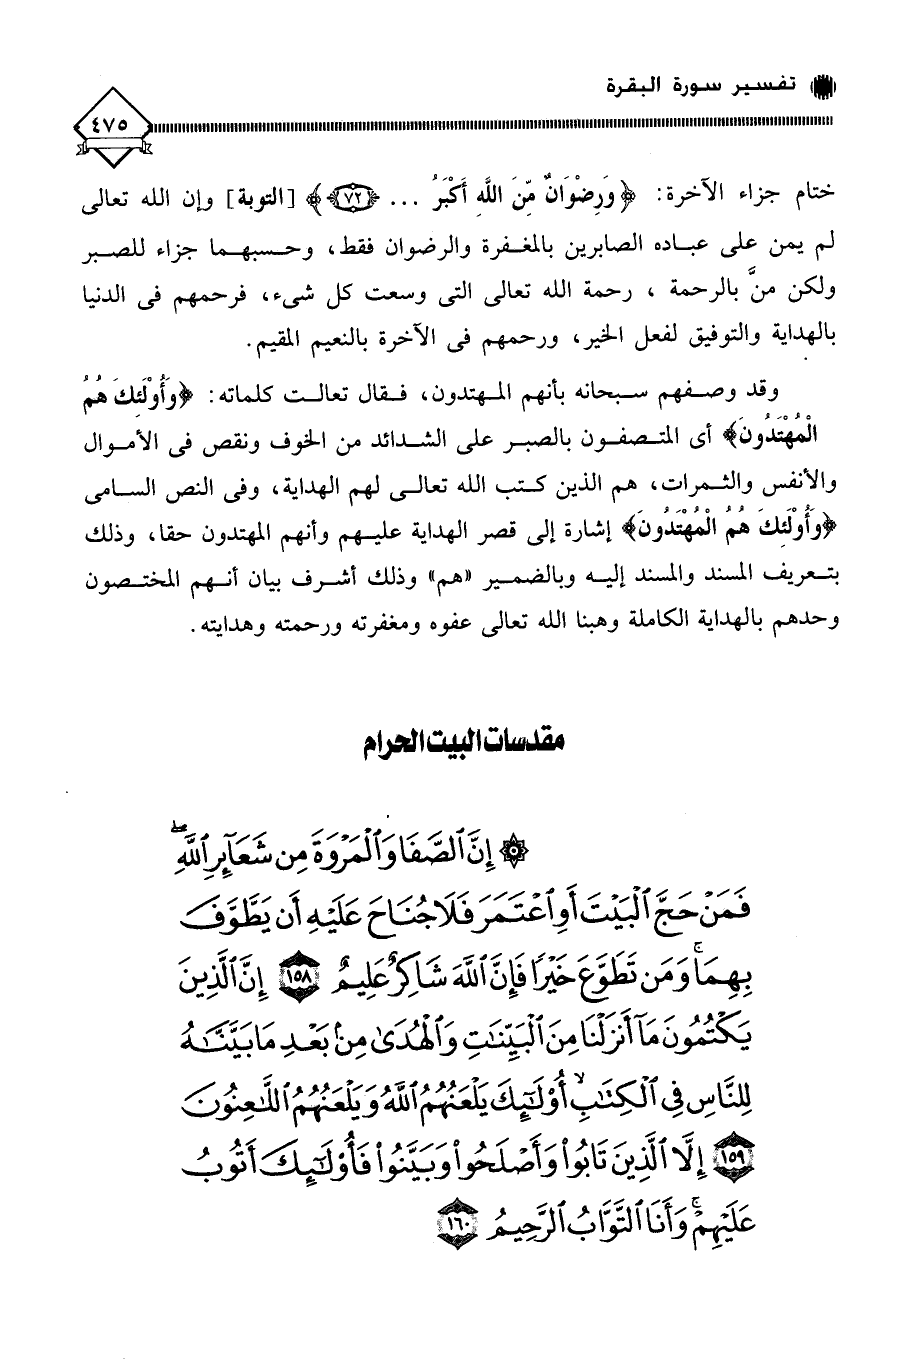 تفسير سورة البقرة
٤٧٥
ختام جزاء الآخرة: ﴿وَرِضْوَانٌ مِّنَ اللَّهِ أَكْبَرُ ... ﴿٧٢﴾﴾ [التوبة] وإن الله تعالى
لم يمن على عباده الصابرين بالمغفرة والرضوان فقط، وحسبهما جزاء للصبر
ولكن منَّ بالرحمة ، رحمة الله تعالى التى وسعت كل شىء، فرحمهم فى الدنيا
بالهداية والتوفيق لفعل الخير، ورحمهم فى الآخرة بالنعيم المقيم.
وقد وصفهم سبحانه بأنهم المهتدون، فقال تعالت كلماته: ﴿وَأُوْلَئِكَ هُمُ
الْمُهْتَدُونَ﴾ أى المتصفون بالصبر على الشدائد من الخوف ونقص فى الأموال
والأنفس والثمرات، هم الذين كتب الله تعالى لهم الهداية، وفى النص السامى
﴿وَأُوْلَئِكَ هُمُ الْمُهْتَدُونَ﴾ إشارة إلى قصر الهداية عليهم وأنهم المهتدون حقا، وذلك
بتعريف المسند والمسند إليه وبالضمير «هم» وذلك أشرف بيان أنهم المختصون
وحدهم بالهداية الكاملة وهبنا الله تعالى عفوه ومغفرته ورحمته وهدايته.
مقدسات البيت الحرام
۞ إِنَّ ٱلصَّفَا وَٱلْمَرْوَةَ مِن شَعَآئِرِ ٱللَّهِۖ
فَمَنْ حَجَّ ٱلْبَيْتَ أَوِ ٱعْتَمَرَ فَلَا جُنَاحَ عَلَيْهِ أَن يَطَّوَّفَ
بِهِمَاۚ وَمَن تَطَوَّعَ خَيْرًا فَإِنَّ ٱللَّهَ شَاكِرٌ عَلِيمٌ ﴿١٥٨﴾ إِنَّ ٱلَّذِينَ
يَكْتُمُونَ مَآ أَنزَلْنَا مِنَ ٱلْبَيِّنَٰتِ وَٱلْهُدَىٰ مِنۢ بَعْدِ مَا بَيَّنَّٰهُ
لِلنَّاسِ فِى ٱلْكِتَٰبِۙ أُوْلَٰٓئِكَ يَلْعَنُهُمُ ٱللَّهُ وَيَلْعَنُهُمُ ٱللَّٰعِنُونَ
﴿١٥٩﴾ إِلَّا ٱلَّذِينَ تَابُوا۟ وَأَصْلَحُوا۟ وَبَيَّنُوا۟ فَأُو۟لَٰٓئِكَ أَتُوبُ
عَلَيْهِمْۚ وَأَنَا ٱلتَّوَّابُ ٱلرَّحِيمُ ﴿١٦٠﴾